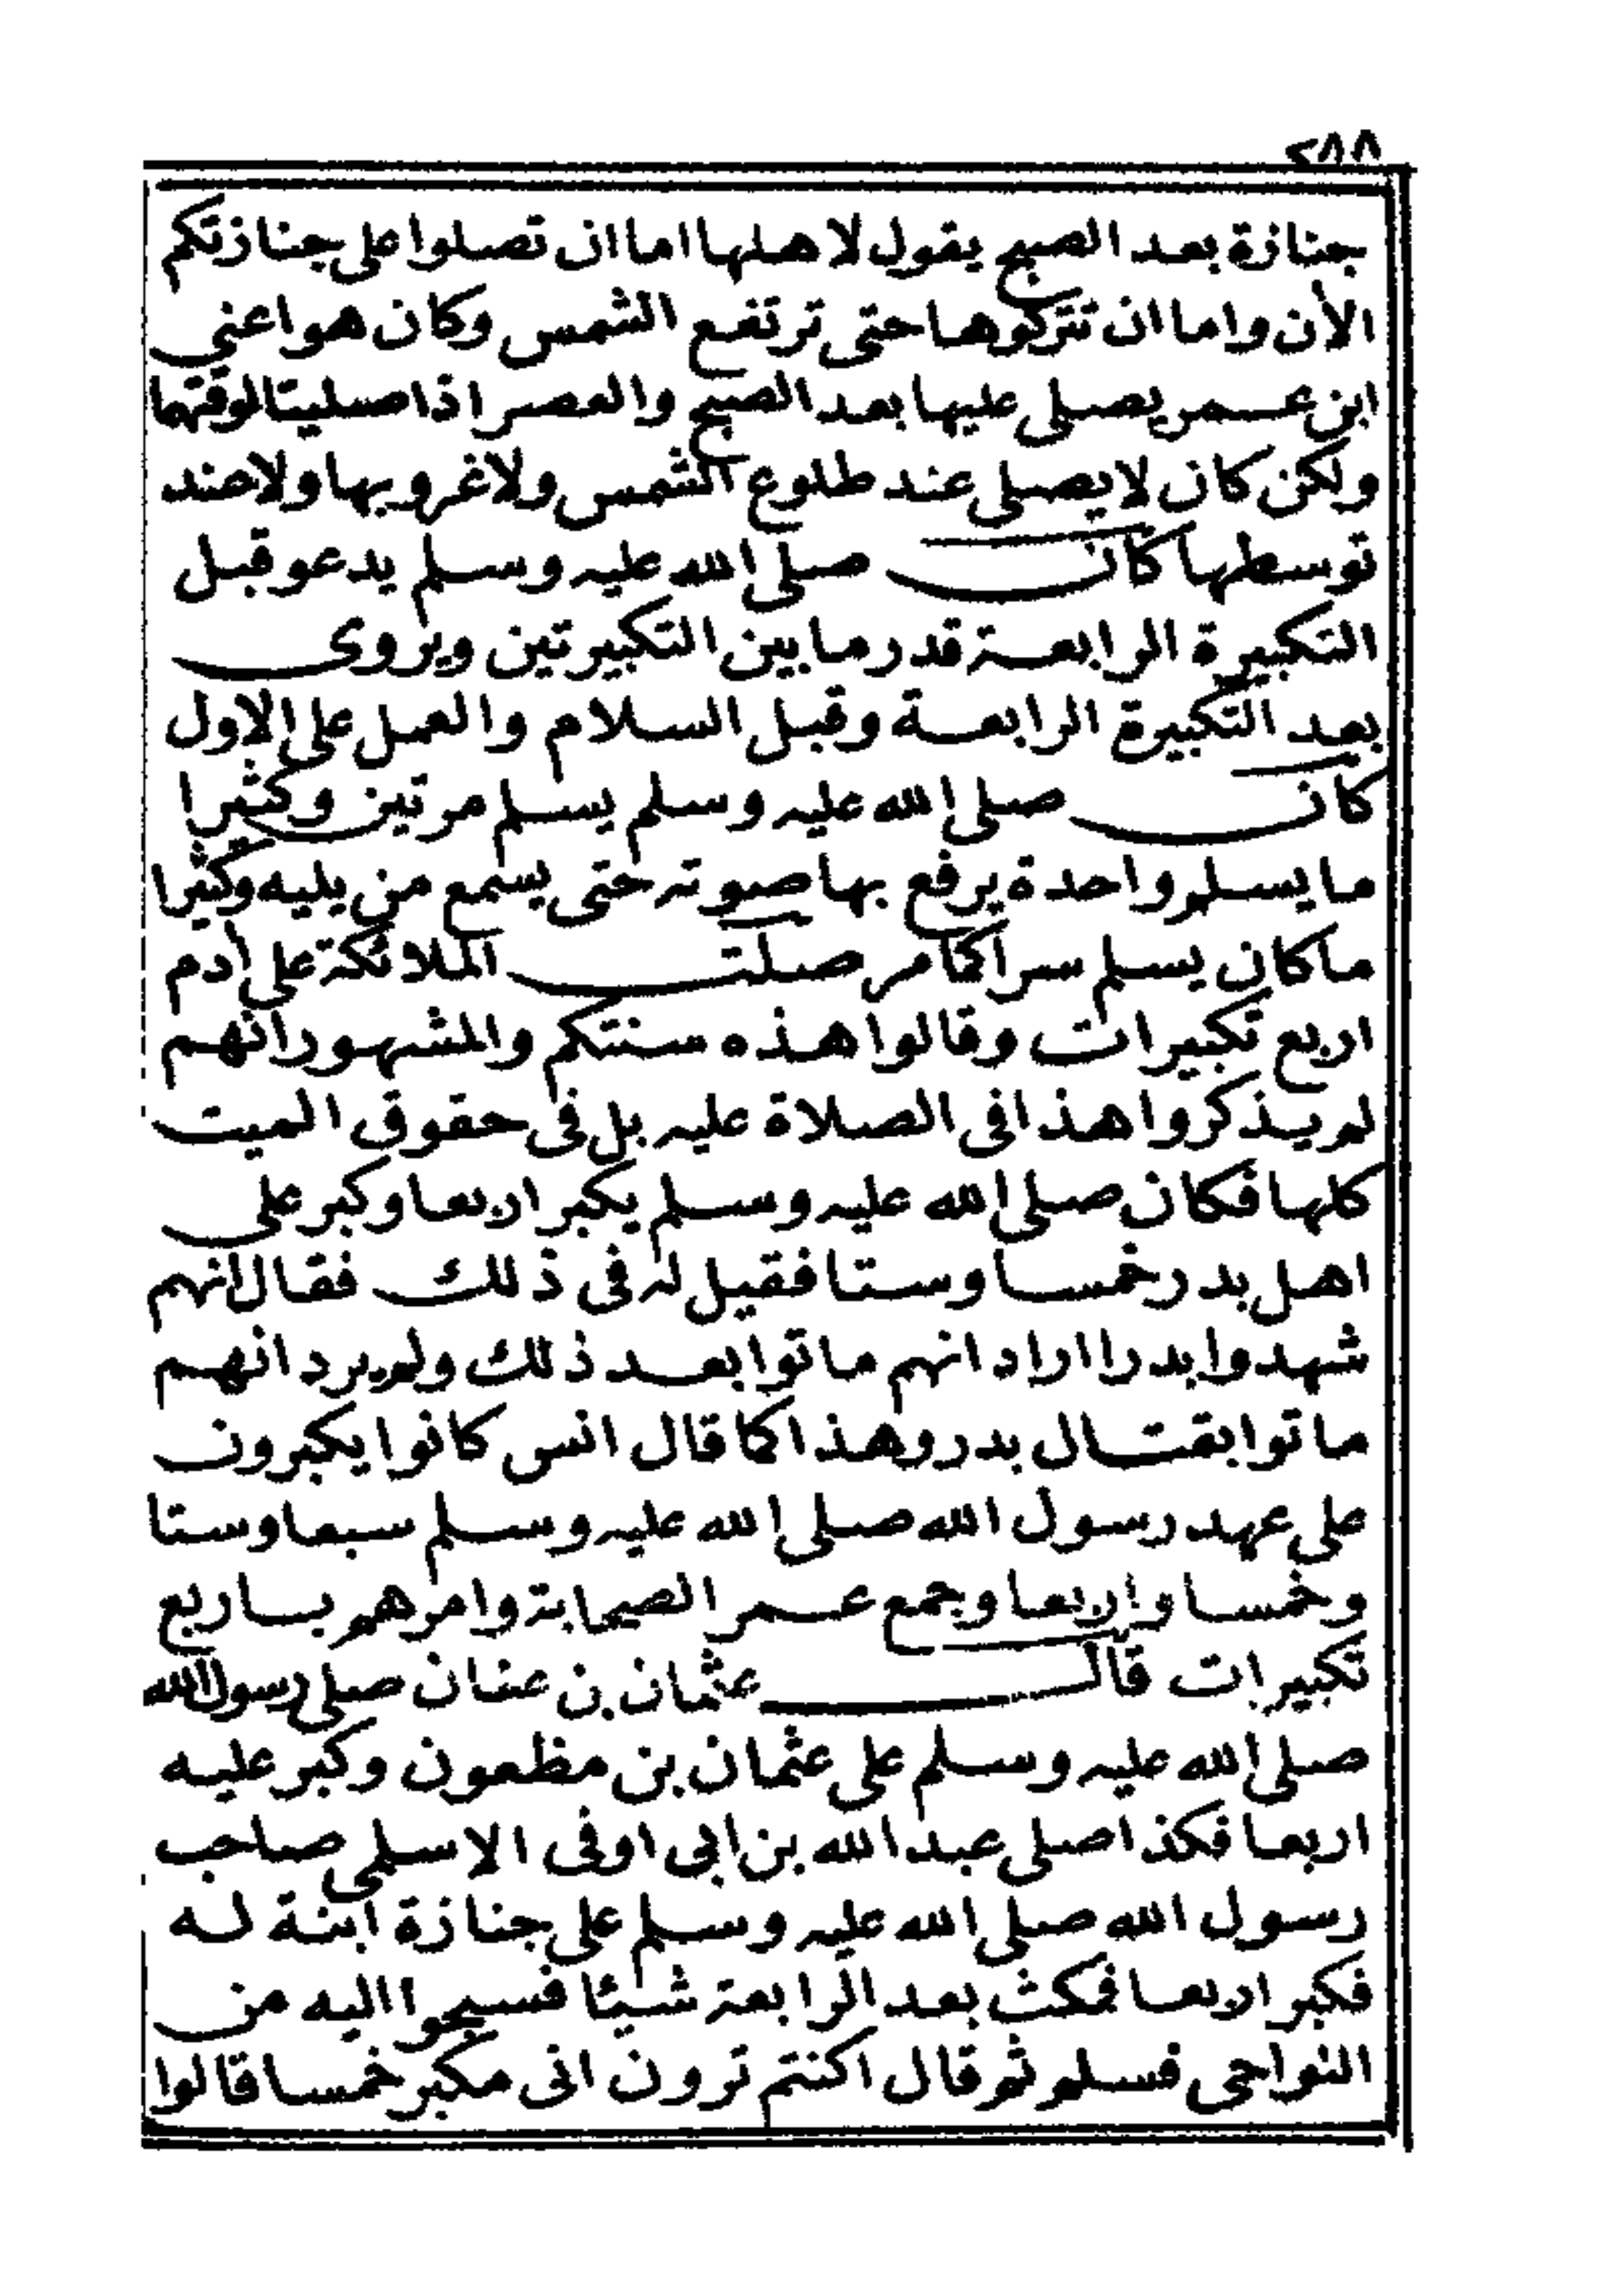 ٢٨٨
جنازة بعد الصبح يقول لاهلها اما ان تصلوا على جنازتكم
الأن واما ان تتركوها حتى ترتفع الشمس وكان هو اعني
ابن عمر يصلى عليها بعد الصبح والعصر اذا صليتا لوقتهما
ولكن كان لا يصلى عند طلوع الشمس ولا غروبها ولا عند
توسطها كان صلى الله عليه وسلم يدعو قبل
التكبيرة الرابعة قدر ما بين التكبيرتين ويروى
بعد التكبيرة الرابعة وقبل السلام والعمل على الاول
كان صلى الله عليه وسلم يسلم مرتين وكثيرا
ما يسلم واحدة يرفع بها صوته حتى يسمع من يليه وكثيرا
ما كان يسلم سرا كما مر صلت الملائكة على أدم
اربع تكبيرات وقالوا هذه سنتكم والمشهور انهم
لم يذكروا هذا فى الصلاة عليه بل فى حقوق الميت
كلها فكان صلى الله عليه وسلم يكبر اربعا وكبر على
اهل بدر خمسا وستا فقيل له فى ذلك فقال انهم
شهدوا بدرا اراد انهم ماتوا بعد ذلك ولم يرد انهم
ماتوا بقتال بدر وهذا كما قال انس كانوا يكبرون
على عهد رسول الله صلى الله عليه وسلم سبعا وستا
وخمسا واربعا وجمع عمر الصحابة وامرهم بساربع
تكبيرات قال عثمان بن عفان صلى رسول الله
صلى الله عليه وسلم على عثمان بن مظعون وكبر عليه
اربعا فكذا صلى عبد الله بن ابي اوفى الاسلمى صاحب
رسول الله صلى الله عليه وسلم على جنازة ابنة له
فكبر اربعا فمكث بعد الرابعة شيئا فسبحوا اليه من
النواحى فسلم ثم قال اكنتم ترون انى مكبر خمسا قالوا